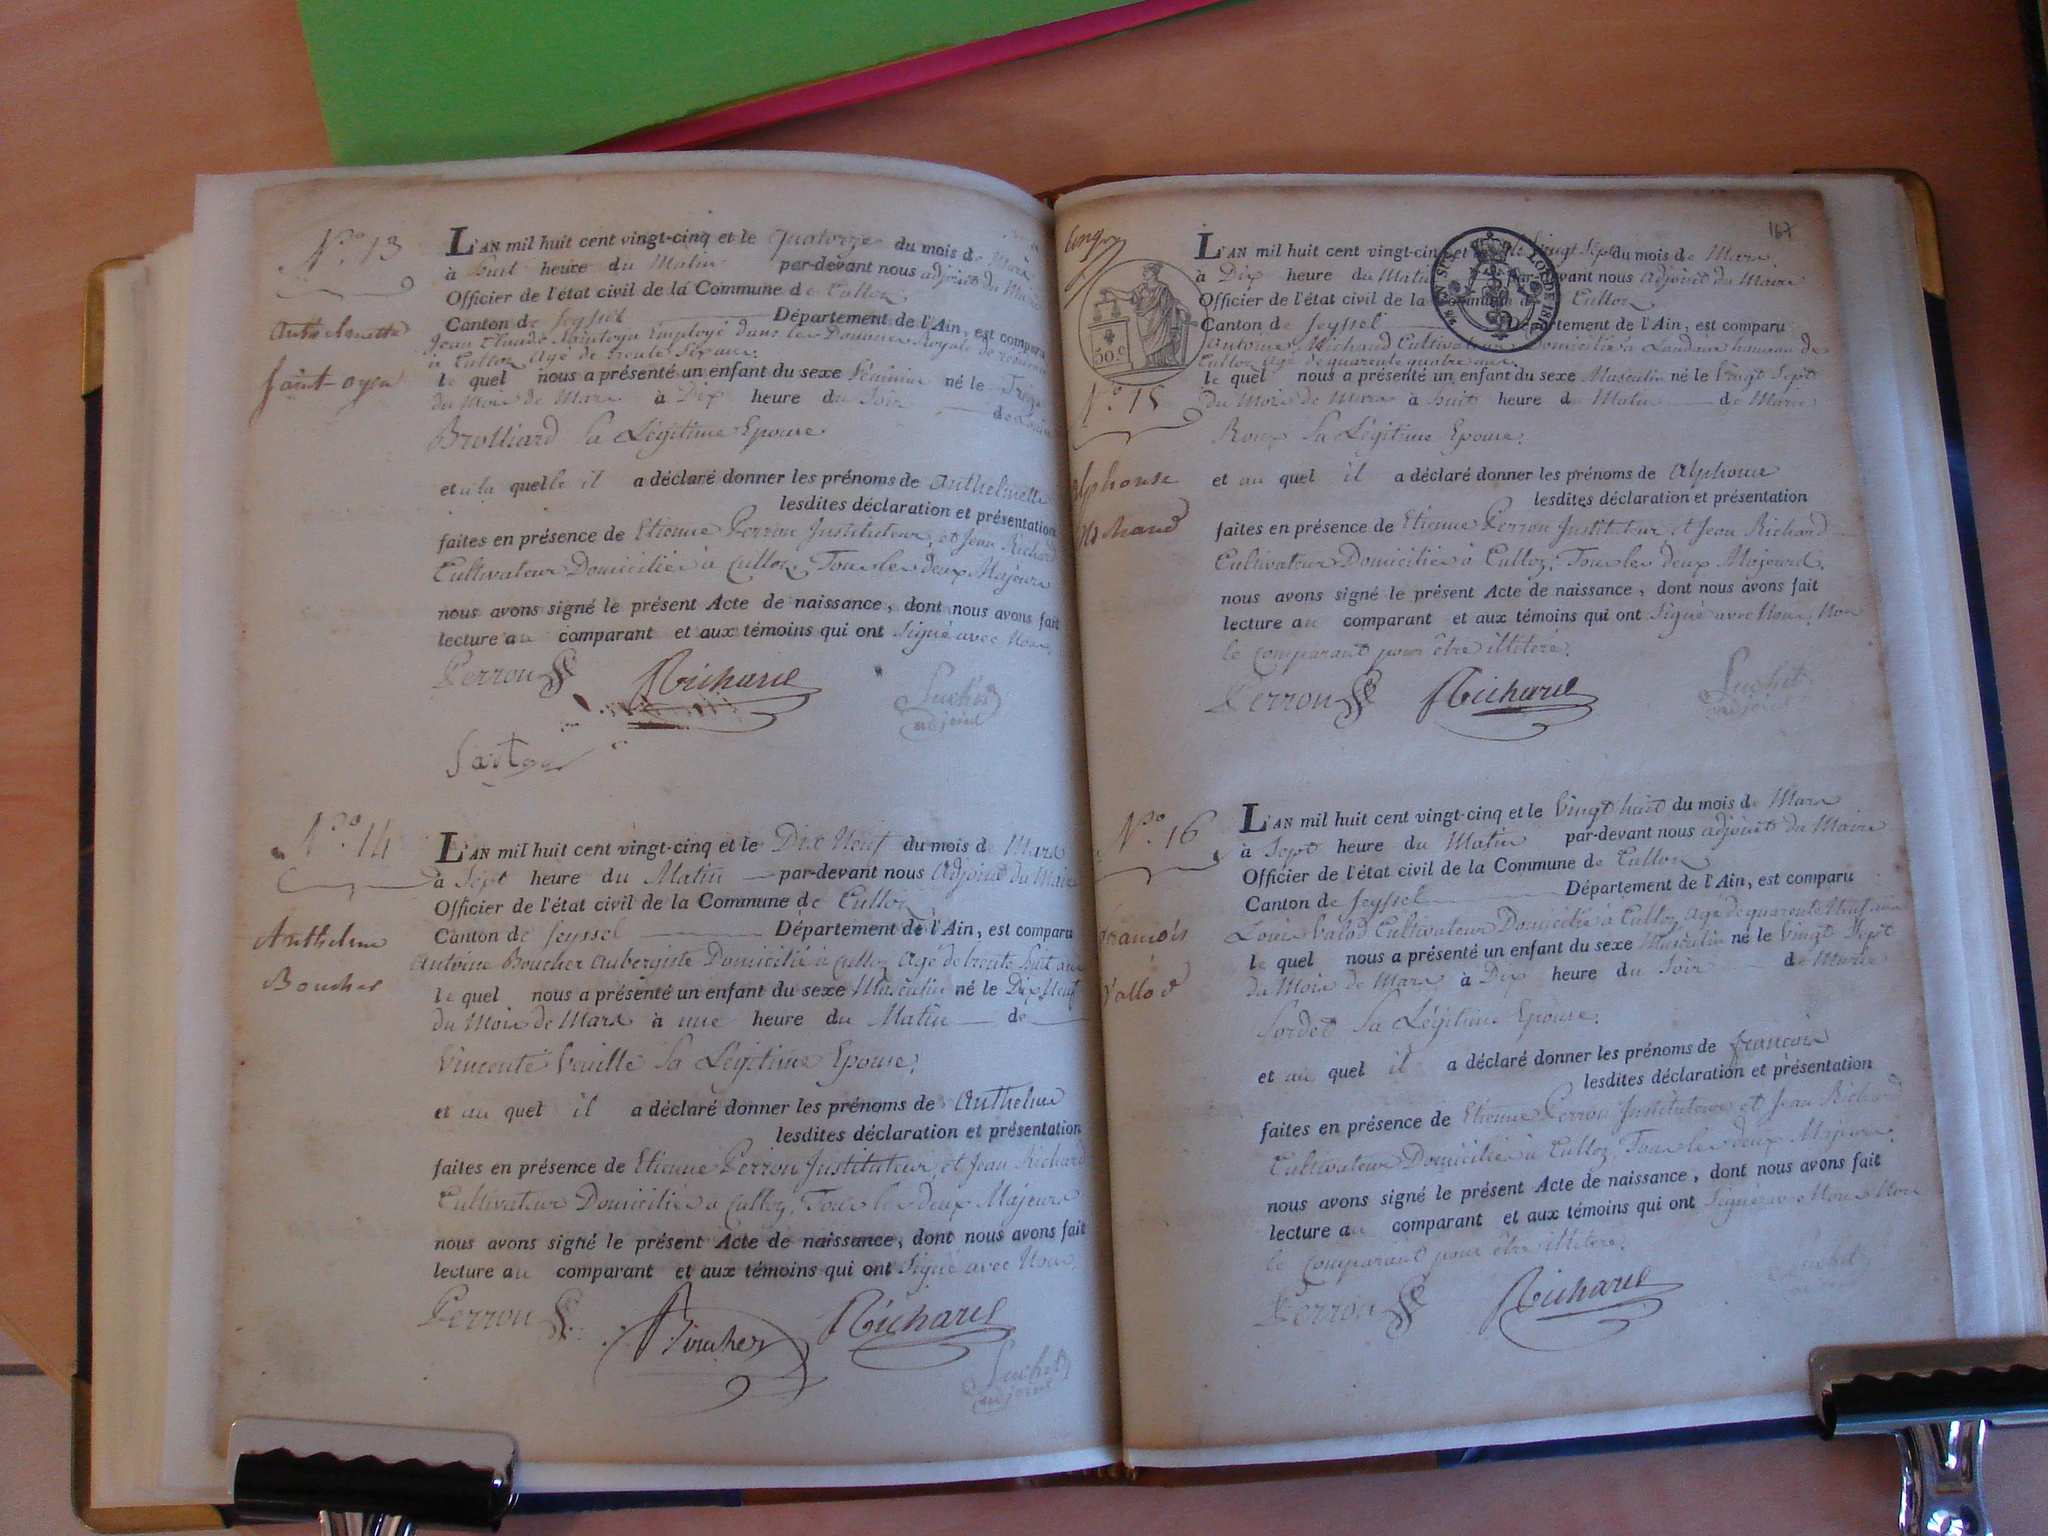 N.º 13
Anthelmette
Saint-oyen
L'AN mil huit cent vingt-cinq et le quatorze du mois de Mars
à huit heure du Matin par-devant nous adjoint du Maire
Officier de l'état civil de la Commune de Culloz
Canton de Seyssel Département de l'Ain, est comparu
Jean Claude Saintoyen Employé dans les Douanes Royale de résidence
à Culloz Agé de trente Six ans.
le quel nous a présenté un enfant du sexe féminin né le Treize
du Mois de Mars à Dix heure du Soir de Louise
Brolliard Sa Légitime Epouse.
et à la quelle il a déclaré donner les prénoms de Anthelmette
lesdites déclaration et présentation
faites en présence de Etienne Perron Instituteur, et Jean Richard
Cultivateur Domiciliés à Culloz, Tous les deux Majeurs
nous avons signé le présent Acte de naissance, dont nous avons fait
lecture au comparant et aux témoins qui ont Signé avec Nous.
Perron Richard Luchet
adjoint
N.º 14
Anthelme
Boucher
L'AN mil huit cent vingt-cinq et le Dix Neuf du mois de Mars
à Sept heure du Matin par-devant nous Adjoint du Maire
Officier de l'état civil de la Commune de Culloz
Canton de Seyssel Département de l'Ain, est comparu
Antoine Boucher Aubergiste Domicilié à Culloz Agé de trente huit ans
le quel nous a présenté un enfant du sexe Masculin né le Dix Neuf
du Mois de Mars à une heure du Matin de
Vincente Vuille Sa Légitime Epouse.
et au quel il a déclaré donner les prénoms de Anthelme
lesdites déclaration et présentation
faites en présence de Etienne Perron Instituteur, et Jean Richard
Cultivateur Domiciliés à Culloz, Tous les deux Majeurs
nous avons signé le présent Acte de naissance, dont nous avons fait
lecture au comparant et aux témoins qui ont Signé avec Nous.
Perron Boucher Richard
Luchet
adjoint
167
50.c
N.º 15
Alphonse
Richand
L'AN mil huit cent vingt-cinq et le Vingt Sept du mois de Mars
à Dix heure du Matin par-devant nous Adjoint du Maire
Officier de l'état civil de la Commune de Culloz
Canton de Seyssel Département de l'Ain, est comparu
Antoine Richand Cultivateur Domicilié à Landaise hameau de
Culloz Agé de quarante quatre ans.
le quel nous a présenté un enfant du sexe Masculin né le Vingt Sept
du Mois de Mars à huit heure du Matin de Marie
Roux Sa Légitime Epouse.
et au quel il a déclaré donner les prénoms de Alphonse
lesdites déclaration et présentation
faites en présence de Etienne Perron Instituteur et Jean Richard
Cultivateur Domiciliés à Culloz, Tous les deux Majeurs.
nous avons signé le présent Acte de naissance, dont nous avons fait
lecture au comparant et aux témoins qui ont Signé avec Nous, Non
le Comparant pour être illitéré.
Perron Richard Luchet
adjoint
N.º 16
francois
Vallod
L'AN mil huit cent vingt-cinq et le Vingt huit du mois de Mars
à Sept heure du Matin par-devant nous adjoint du Maire
Officier de l'état civil de la Commune de Culloz
Canton de Seyssel Département de l'Ain, est comparu
Louis Valod Cultivateur Domicilié à Culloz agé de quarante Neuf ans
le quel nous a présenté un enfant du sexe Masculin né le Vingt Sept
du Mois de Mars à Dix heure du Soir de Marie
Sordet Sa Légitime Epouse.
et au quel il a déclaré donner les prénoms de francois
lesdites déclaration et présentation
faites en présence de Etienne Perron Instituteur et Jean Richard
Cultivateur Domiciliés à Culloz, Tous les deux Majeurs.
nous avons signé le présent Acte de naissance, dont nous avons fait
lecture au comparant et aux témoins qui ont Signé avec Nous Non
le Comparant pour être illitéré.
Perron Richard Luchet